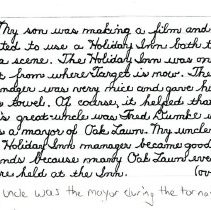 My son was making a film and
ted to use a Holiday Inn bath t
a scene. The Holiday Inn was on
t from where Target is now. The
nager was very nice and gave h
s towel. Of course, it helped tha
is great-uncle was Fred Dumke w
s a mayor of Oak Lawn. My uncle
Holiday Inn manager became good
nds because many Oak Lawn eve
re held at the Inn. (ov
uncle was the mayor during the torna